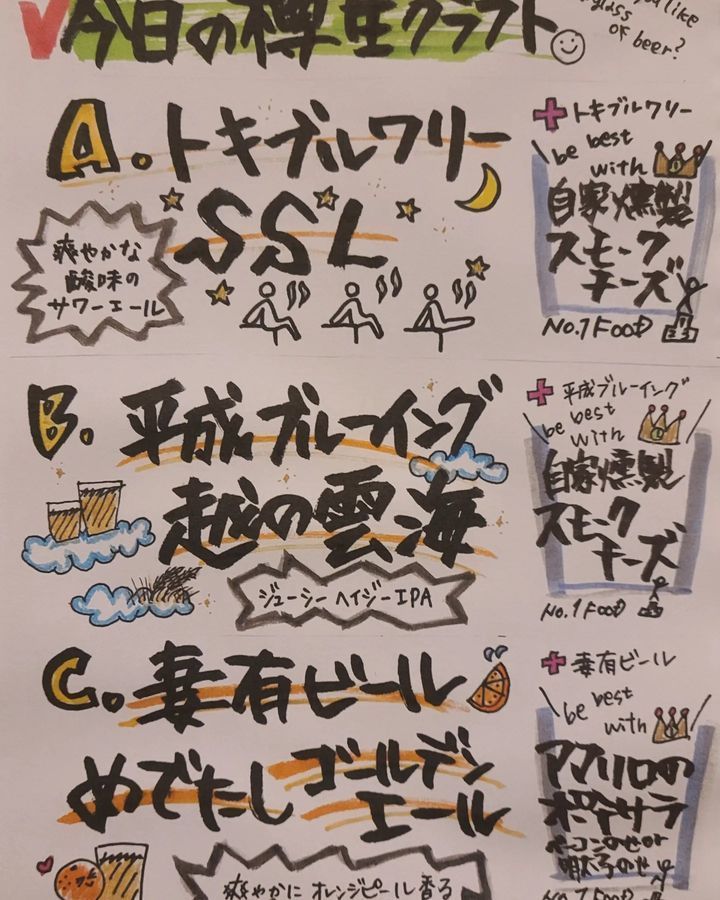 今日の樽生クラフト
you like
glass
of beer?
A. トキブルワリー
SSL
爽やかな
酸味の
サワーエール
+ トキブルワリー
be best
with
自家燻製
スモーク
チーズ
No.1 FOOD
B. 平成ブルーイング
越の雲海
ジューシーヘイジーIPA
+ 平成ブルーイング
be best
with
自家燻製
スモーク
チーズ
No.1 FOOD
C. 妻有ビール
めでたし ゴールデン
エール
爽やかに オレンジピール香る
+ 妻有ビール
be best
with
アフリロの
ポテサラ
ベーコンのせor
明太子のせ
No.1 FOOD